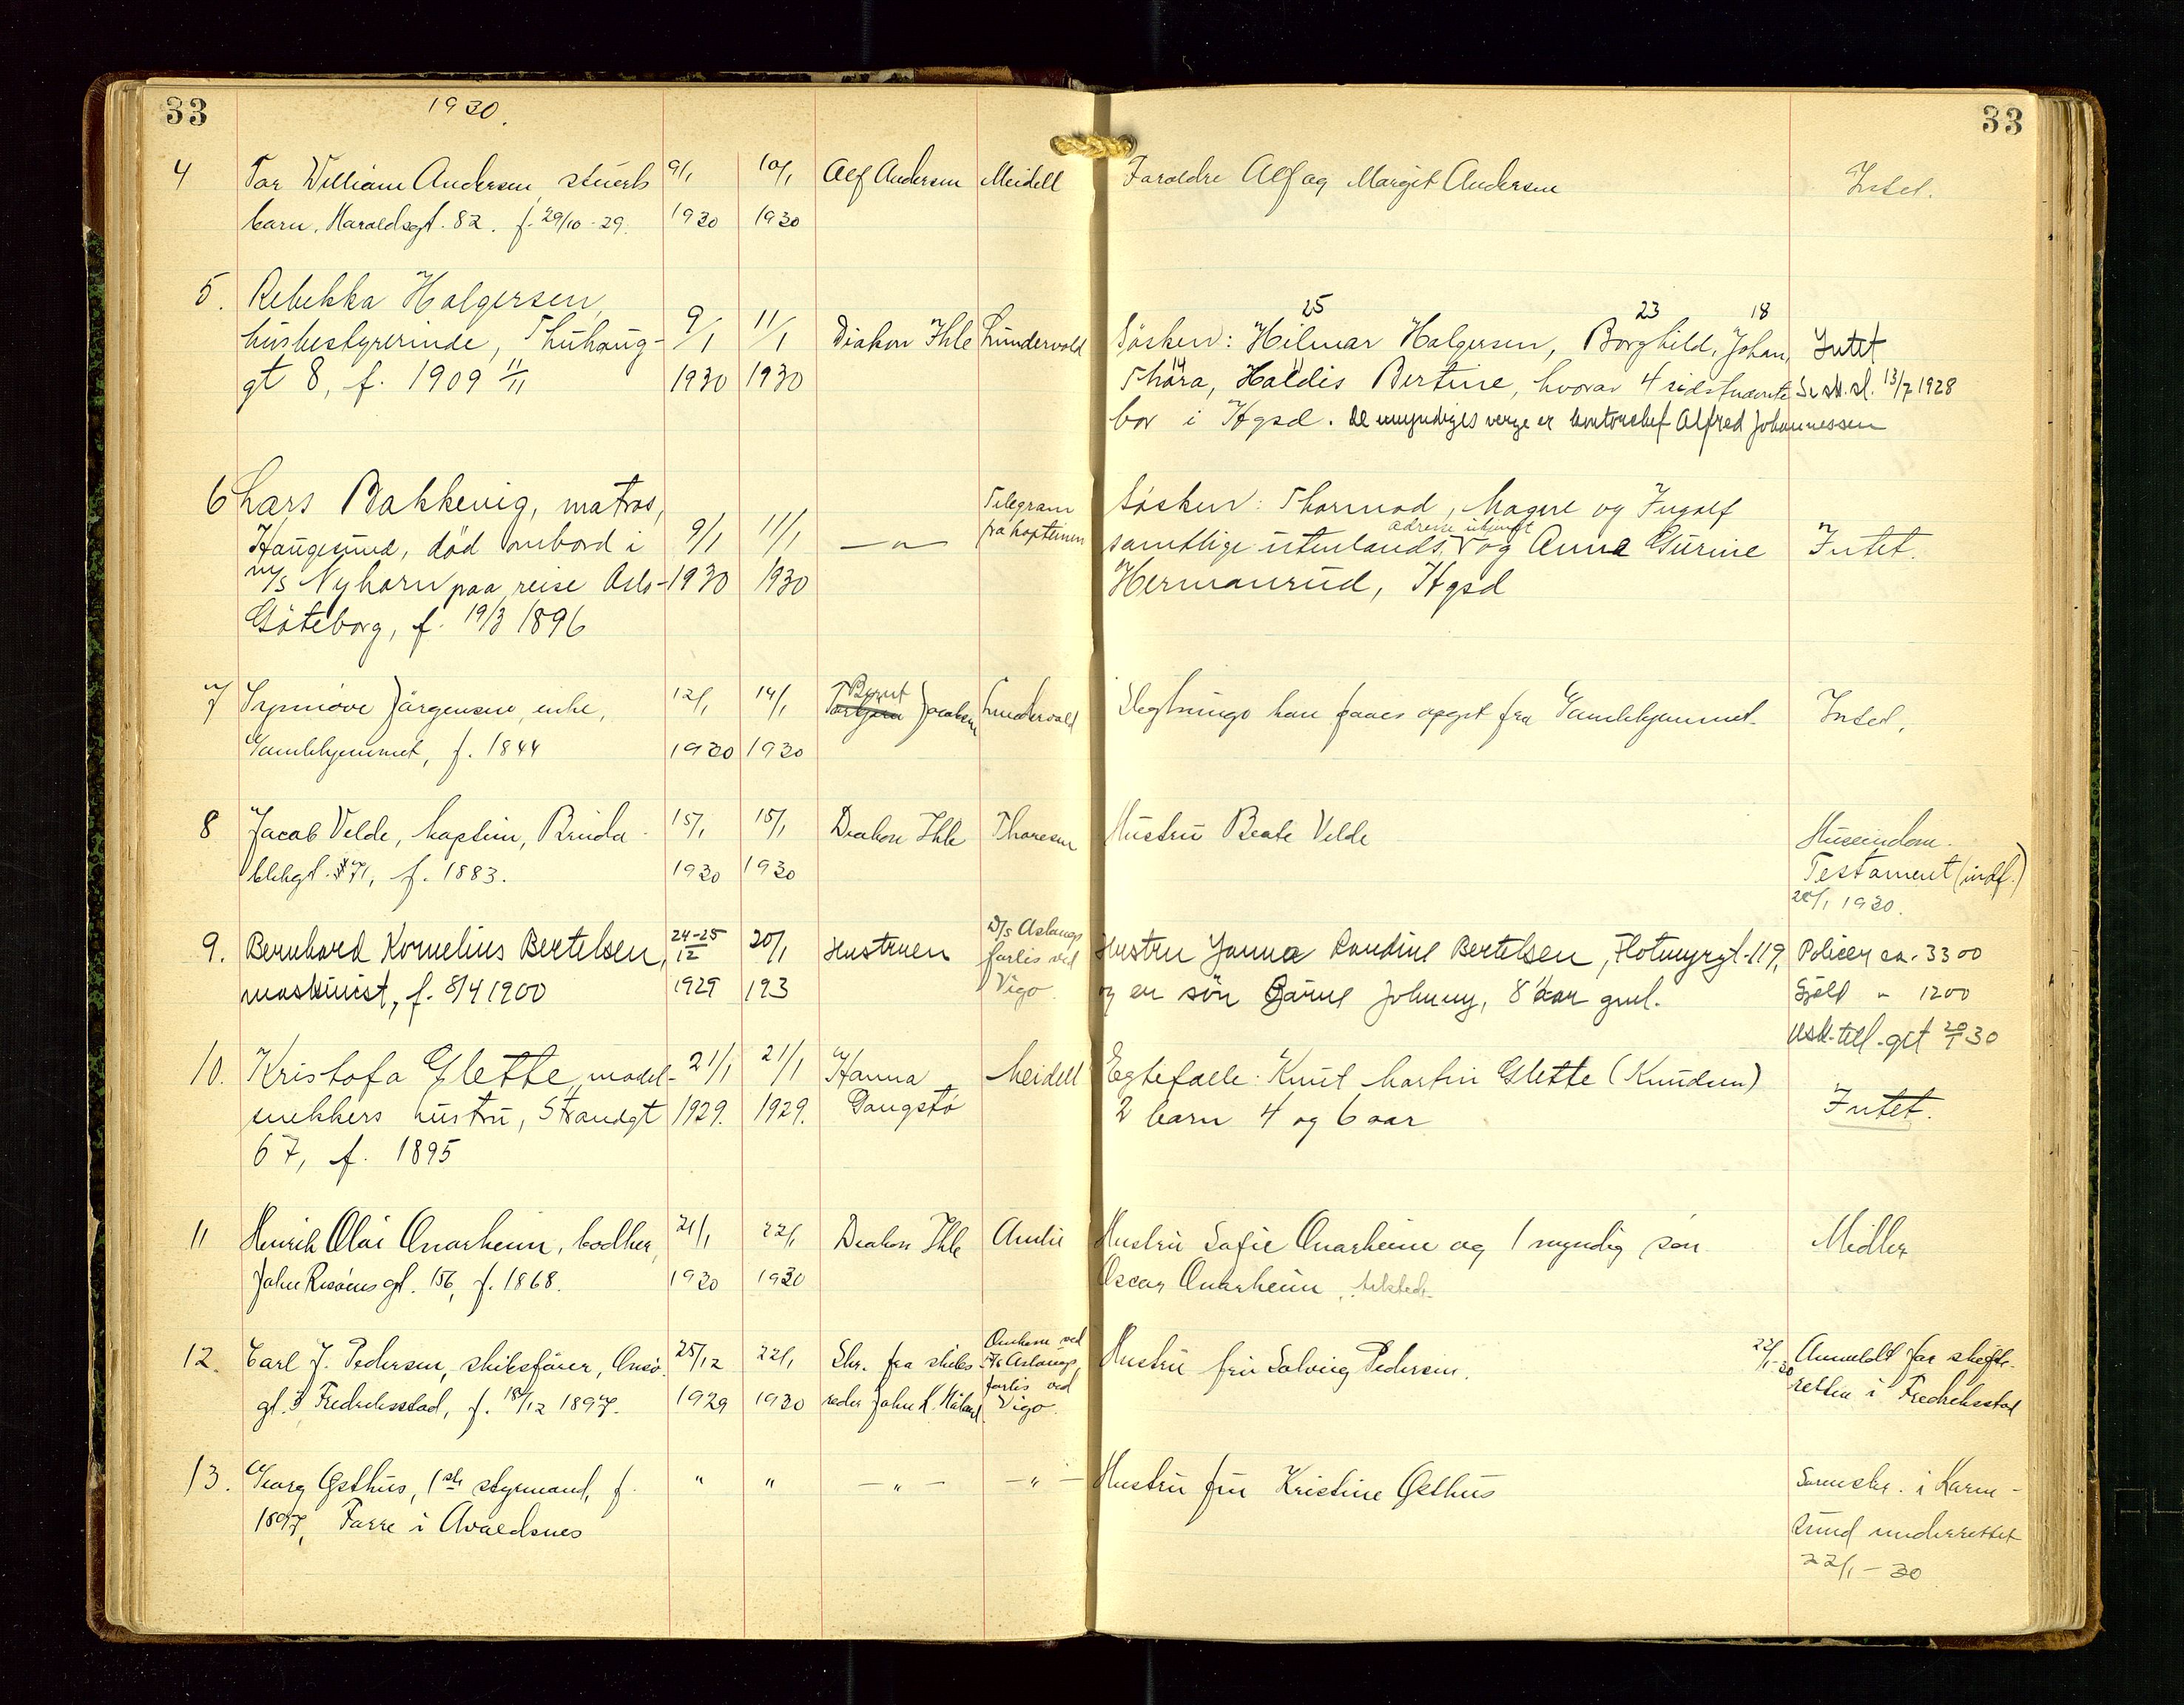 33
1930.
33
4 Tor William Andersen, stuerts 9/1 10/1 Alf Andersen Meidell Foraldre Alf og Margit Andersen Intet.
barn, Haraldsgt. 82. f. 29/10-29. 1930 1930
5. Rebekka Holgersen,
25 23 18
husbestyrerinde, Thuhaug- 9/1 11/1 Diakon Ihle Lundervold Søsken: Hilmar Holgersen, Borghild, Johan, Intet
14 11
gt 8, f. 1909 11/11 1930 1930 Thora, Haldis Bertine, hvorav 4 sidstnævnte Se sk.sl. 13/7 1928
bor i Hgsd. De umyndiges verge er kontorchef Alfred Johannessen
6 Lars Bakkevig, matros, Telegram Søsken: Thormod, Magne og Ingolf
adresse ubekjent
Haugesund, død ombord i 9/1 11/1 —"— fra kapteinen samtlige utenlands, og Anna Gurine Intet.
m/s Nyhorn paa reise Oslo- 1930 1930 Hermanrud, Hgsd
Göteborg, f. 19/3 1896
Bernt
7 Synnøve Jørgensen, enke, 12/1 14/1 Torbjørn Jacobsen Lundervold Slegtninge kan faaes opgit fra Gamlehjemmet. Intet.
Gamlehjemmet, f. 1844 1930 1930
8 Jacob Velde, kaptein, Breida- 15/1 15/1 Diakon Ihle Thoresen Hustru Beate Velde Huseiendom.
blikgt. 71, f. 1883. 1930 1930 Testament (indf.)
20/1 1930.
9. Bernhard Kornelius Bertelsen, 24-25/12 20/1 Hustruen D/s Aslaugs Hustru Janna Randine Bertelsen, Flotmyrgt. 119, Policer ca. 3300
maskinist, f. 8/4 1900 1929 193 forlis ved og en søn Bjarne Johnny, 8 aar gml. Gjeld " 1200
Vigo. Usk. till. git 20/1 30
10. Kristofa Glette, model- 21/1 21/1 Hanna Meidell Egtefælle: Knut Martin Glette (Knudsen)
snekkers hustru, Strandgt 1929. 1929. Dangstø 2 barn 4 og 6 aar Intet.
67, f. 1895
11 Henrik Olai Onarheim, bødker, 21/1 22/1 Diakon Ihle Amlie Hustru Sofie Onarheim og 1 myndig søn Midler
John Risøens gt. 156, f. 1868. 1930 1930 Oscar Onarheim,
12. Carl J. Pedersen, skibsfører, Onsø- 25/12 22/1 Skr. fra skibs- Omkom ved D/s Aslaugs Hustru fru Solveig Pedersen. 22/1-30 Anmeldt for skifte-
gt. 3 Fredrikstad, f. 18/12 1897. 1929 1930 reder John K. forlis ved Vigo. retten i Fredrikstad
13. Georg Østhus, 1ste styrmand, f. " " —"— —"— Hustru fru Kristine Østhus Sorenskr. i Karm-
1897, Førre i Avaldsnes sund underrettet
22/1-30